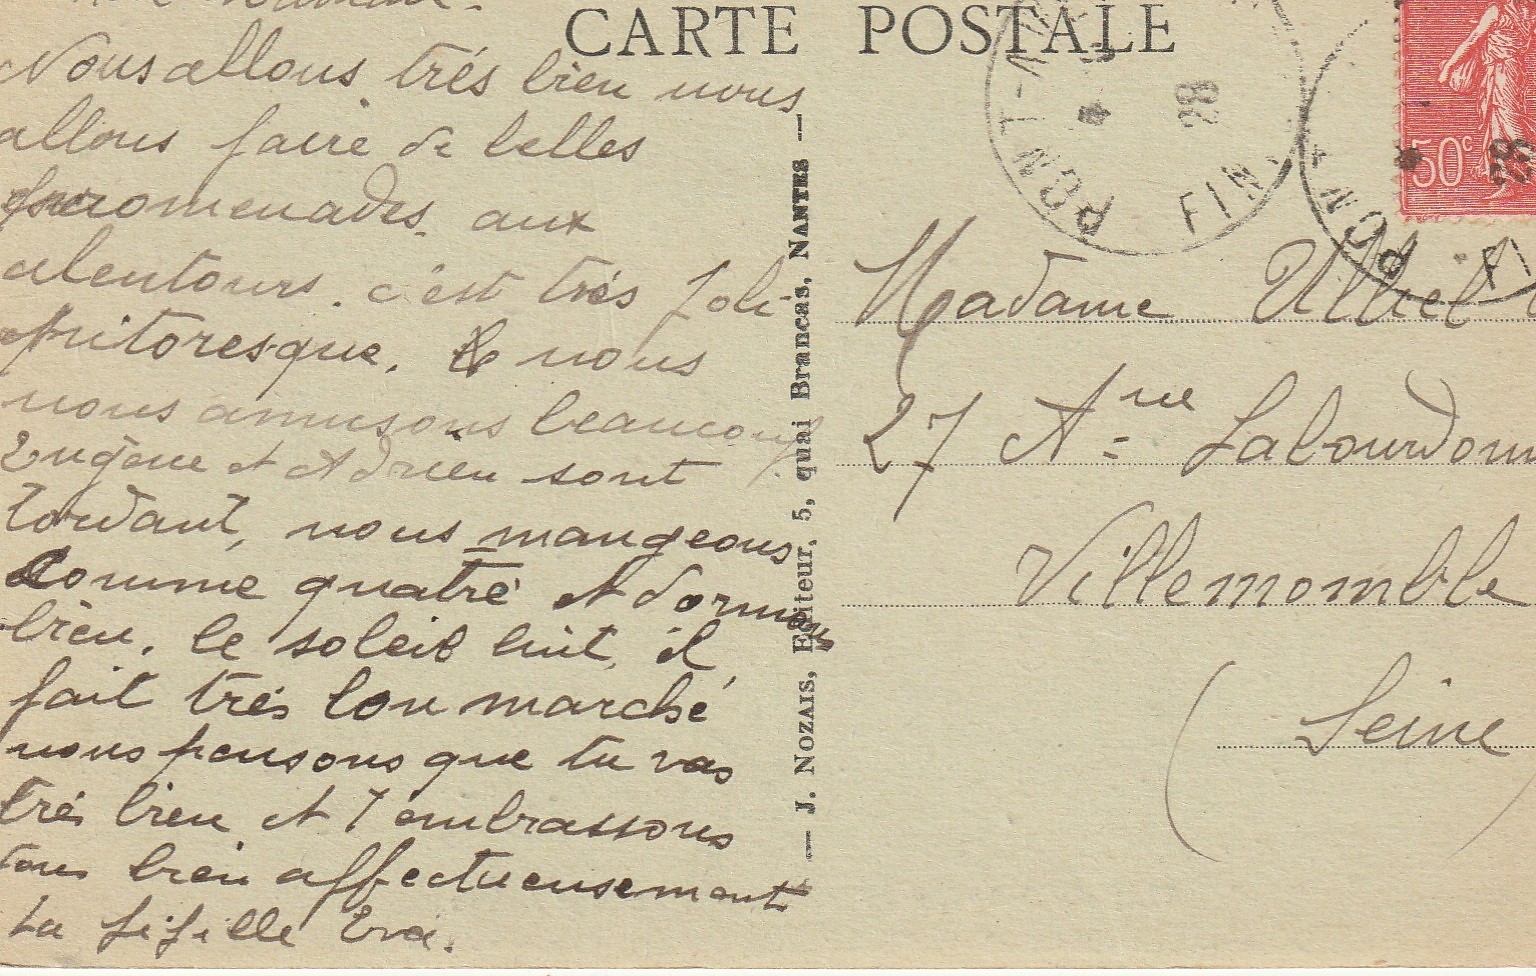 Nous allons très bien nous
allons faire de belles
promenades aux
alentours. c'est très joli
pitoresque. & nous
nous amusons beaucoup
Eugène et Adrien sont
tordant, nous mangeons
comme quatre et dormons
bien. le soleil luit, il
fait très bon marché
nous pensons que tu vas
très bien et t'embrassons
tous bien affectueusement
ta fifille Eva.
CARTE POSTALE
— J. NOZAIS, Editeur, 5, quai Brancas, NANTES —
PONT-AV
28
FIN.
50c
28
PON
FI
Madame
27 Anue Labourdonn
Villemomble
(Seine)